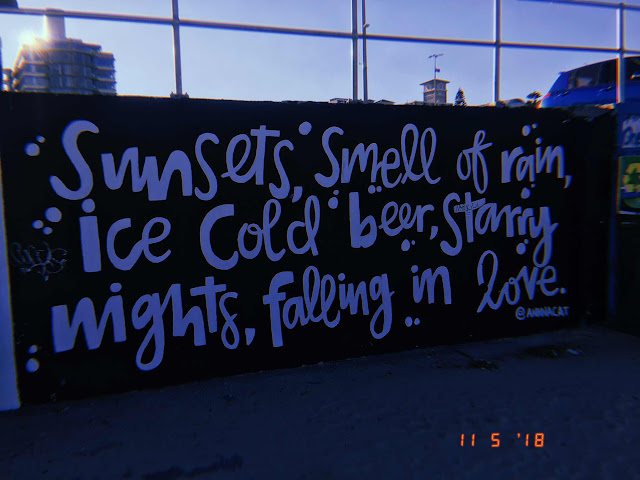 Sunsets, Smell of rain,
ice Cold beer, Starry
nights, falling in love.
@ANINACAT
11 5 '18